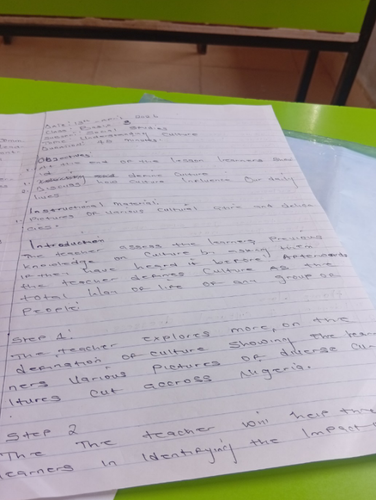 Date: 10th April 2026
Class: Basic 3
Subject: Social Studies
Topic: Understanding Culture
Duration: 40 minutes
Objectives
At the end of the lesson learners
1. and define Culture
2. Discuss how Culture Influence our daily
lives
Instructional Material
1. Pictures of various Cultural
Introduction
The teacher assess the learners Previous
knowledge on Culture by asking them
if they have heard it before. Afterwards
the teacher defines Culture as the
total way of life of any group of
People
Step 1:
The teacher explores more, on the
defination of culture showing the lear-
ners various pictures of diverse cu-
ltures cut accross Nigeria.
Step 2
The The teacher will help the
learners in Identifying the Impact